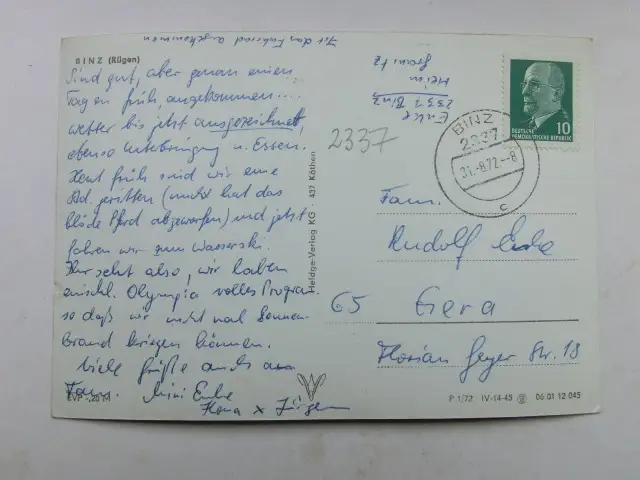 Ist das Fahrrad angekommen
BINZ (Rügen)
Sind gut, aber genau einen
Tag zu früh, angekommen....
Wetter bis jetzt ausgezeichnet,
ebenso Unterbringung u. Essen.
Heut früh sind wir eine
Std. geritten (mich hat das
blöde Pferd abgeworfen) und jetzt
fahren wir zum Wasserski.
Ihr seht also, wir haben
einschl. Olympia volles Programm
so daß wir nicht mal Sonnen-
brand kriegen können.
Viele Grüße auch an
Fam.
Ilona x Jürgen
EVP -,20 M
Heldge-Verlag KG · 437 Köthen
2337 Binz
Heim
Granitz
2337
BINZ
2337
31.-8.72.-8
c
DEUTSCHE
DEMOKRATISCHE REPUBLIK
10
Fam.
Rudolf
65 Gera
Florian Geyer Str. 18
P 1/72 IV-14-45 06 01 12 045